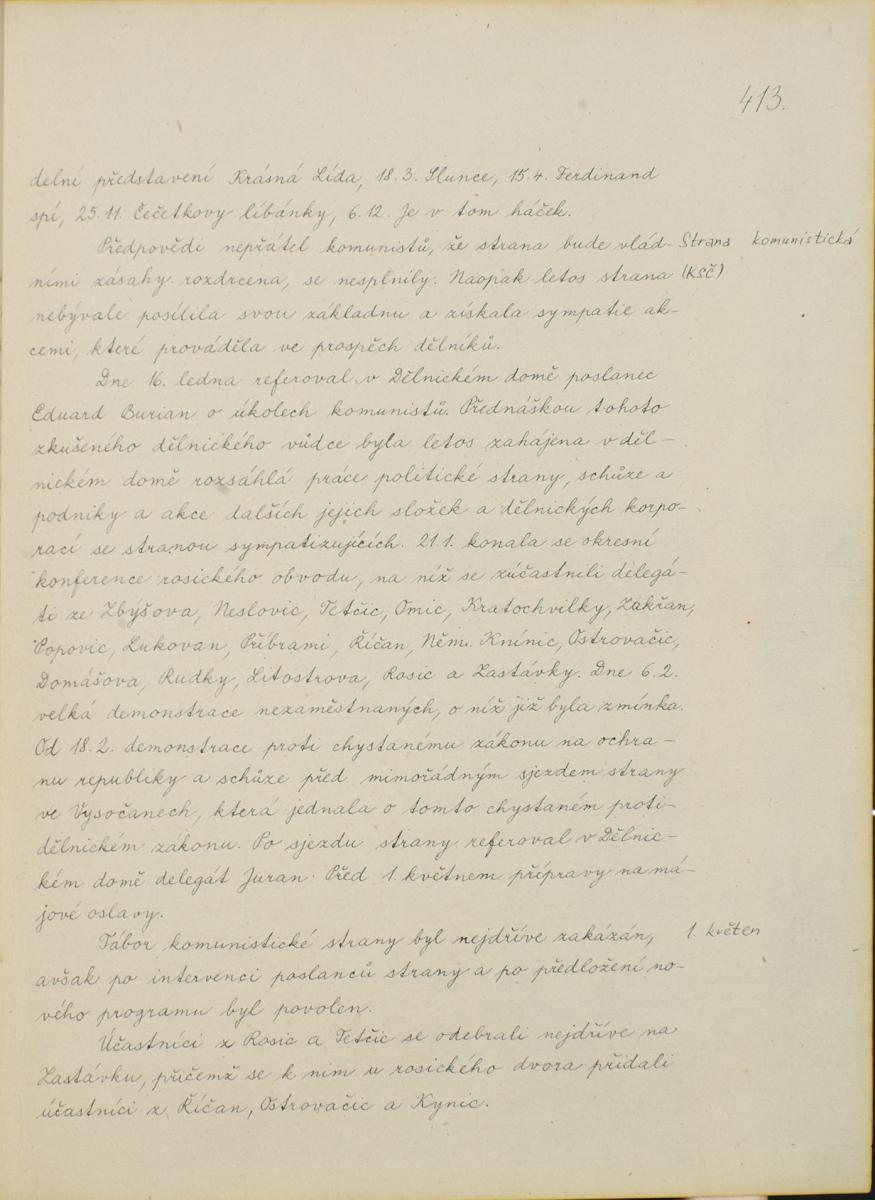 413.
delní představení Krásná Lída, 18.3. Slunce, 15.4. Ferdinand
spí, 25.11. Čečetkovy líbánky, 6.12. Je v tom háček.
Předpovědi nepřátel komunistů, že strana bude vlád-
Strana komunistická
ními zásahy rozdrcena, se nesplnily. Naopak letos strana
(KSČ)
nebývale posílila svou základnu a získala sympatie ak-
cemi, které prováděla ve prospěch dělníků.
Dne 16. ledna referoval v Dělnickém domě poslanec
Eduard Burian o úkolech komunistů. Přednáškou tohoto
zkušeného dělnického vůdce byla letos zahájena v děl-
nickém domě rozsáhlá práce politické strany, schůze a
podniky a akce dalších jejich složek a dělnických korpo-
rací se stranou sympatizujících. 21.1. konala se okresní
konference rosického obvodu, na níž se zúčastnili delegá-
ti ze Zbýšova, Neslovic, Tetčic, Omic, Kratochvilky, Zakřan,
Popovic, Lukovan, Příbrami, Říčan, Něm. Knínic, Ostrovačic,
Domášova, Rudky, Litostrova, Rosic a Zastávky. Dne 6.2.
velká demonstrace nezaměstnaných, o níž již byla zmínka.
Od 18.2. demonstrace proti chystanému zákonu na ochra-
nu republiky a schůze před mimořádným sjezdem strany
ve Vysočanech, která jednala o tomto chystaném proti-
dělnickém zákonu. Po sjezdu strany referoval v Dělnic-
kém domě delegát Juran. Před 1. květnem přípravy na má-
jové oslavy.
Tábor komunistické strany byl nejdříve zakázán,
1. květen
avšak po intervenci poslanců strany a po předložení no-
vého programu byl povolen.
Účastníci z Rosic a Tetčic se odebrali nejdříve na
Zastávku, přičemž se k nim u rosického dvora přidali
účastníci z Říčan, Ostrovačic a Kynic.